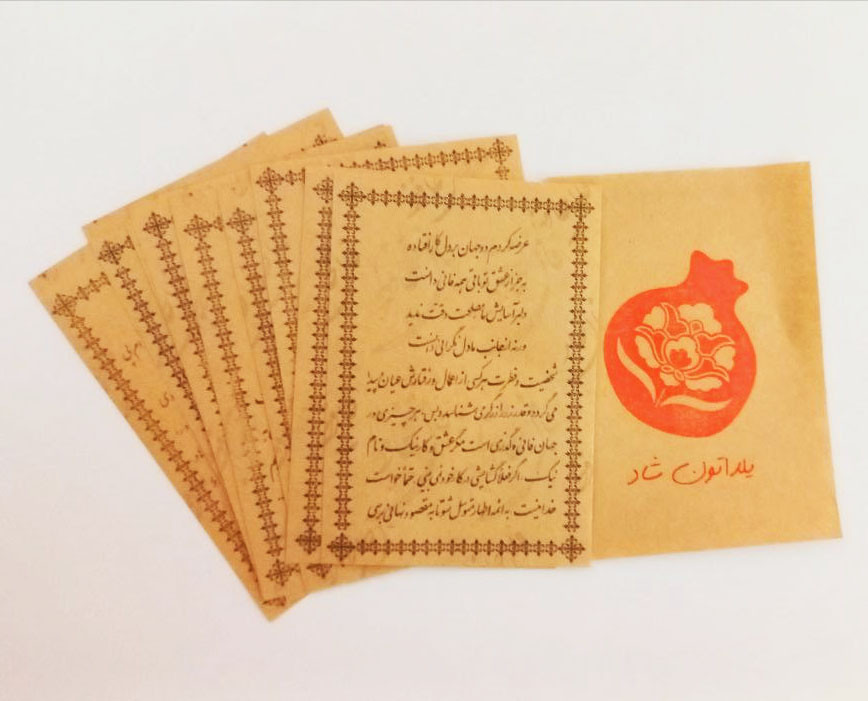 عرضه کردم دو جهان بر دل کار افتاده
به جز از عشق تو باقی همه فانی دانست
دلبر آسایش ما مصلحت وقت ندید
ورنه از جانب ما دل نگرانی دانست
شخصیت و فطرت هر کسی از اعمال و رفتارش عیان و پیدا
می گردد و قدر زر را زرگری شناسد و بس. هر چیزی در
جهان فانی و گذری است مگر عشق و کار نیک و نام
نیک. اگر فعلا گشایشی در کار خود نمی بینی حتما خواست
خدا نیست به ائمه اطهار متوسل شو تا به مقصود نهائی برسی
یلداتون شاد